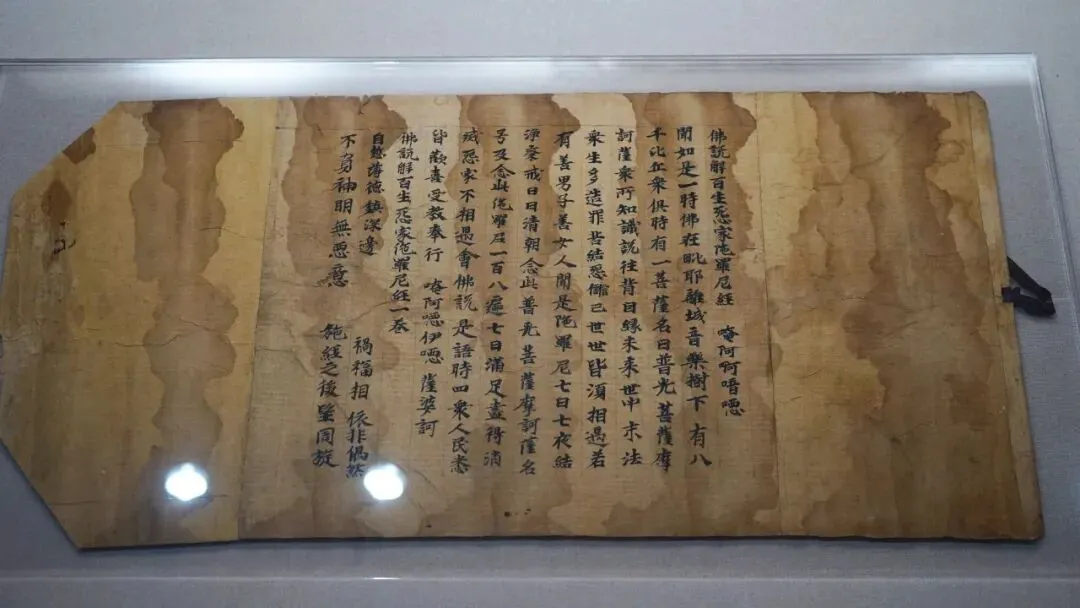 佛說解百生惌家陁羅尼經 唵阿啊喑噁
聞如是一時佛在毗耶離城音樂樹下有八
千比丘衆俱時有一菩薩名曰普光菩薩摩
訶薩衆所知識說往昔因緣未来世中末法
衆生多造罪苦結惌讎已世世皆須相遇若
有善男子善女人聞是陁羅尼七日七夜結
淨齋戒日日清朝念此普光菩薩摩訶薩名
号及念此陁羅尼一百八遍七日滿足盡得消
滅惌家不相遇會佛說是語時四衆人民悉
皆歡喜受教奉行 唵阿噁伊噁 薩婆訶
佛說解百生惌家陁羅尼經一卷
自慙薄德鎮深邊 禍福相依非偶然
不負神明無惡意 施經之後鑒同旋